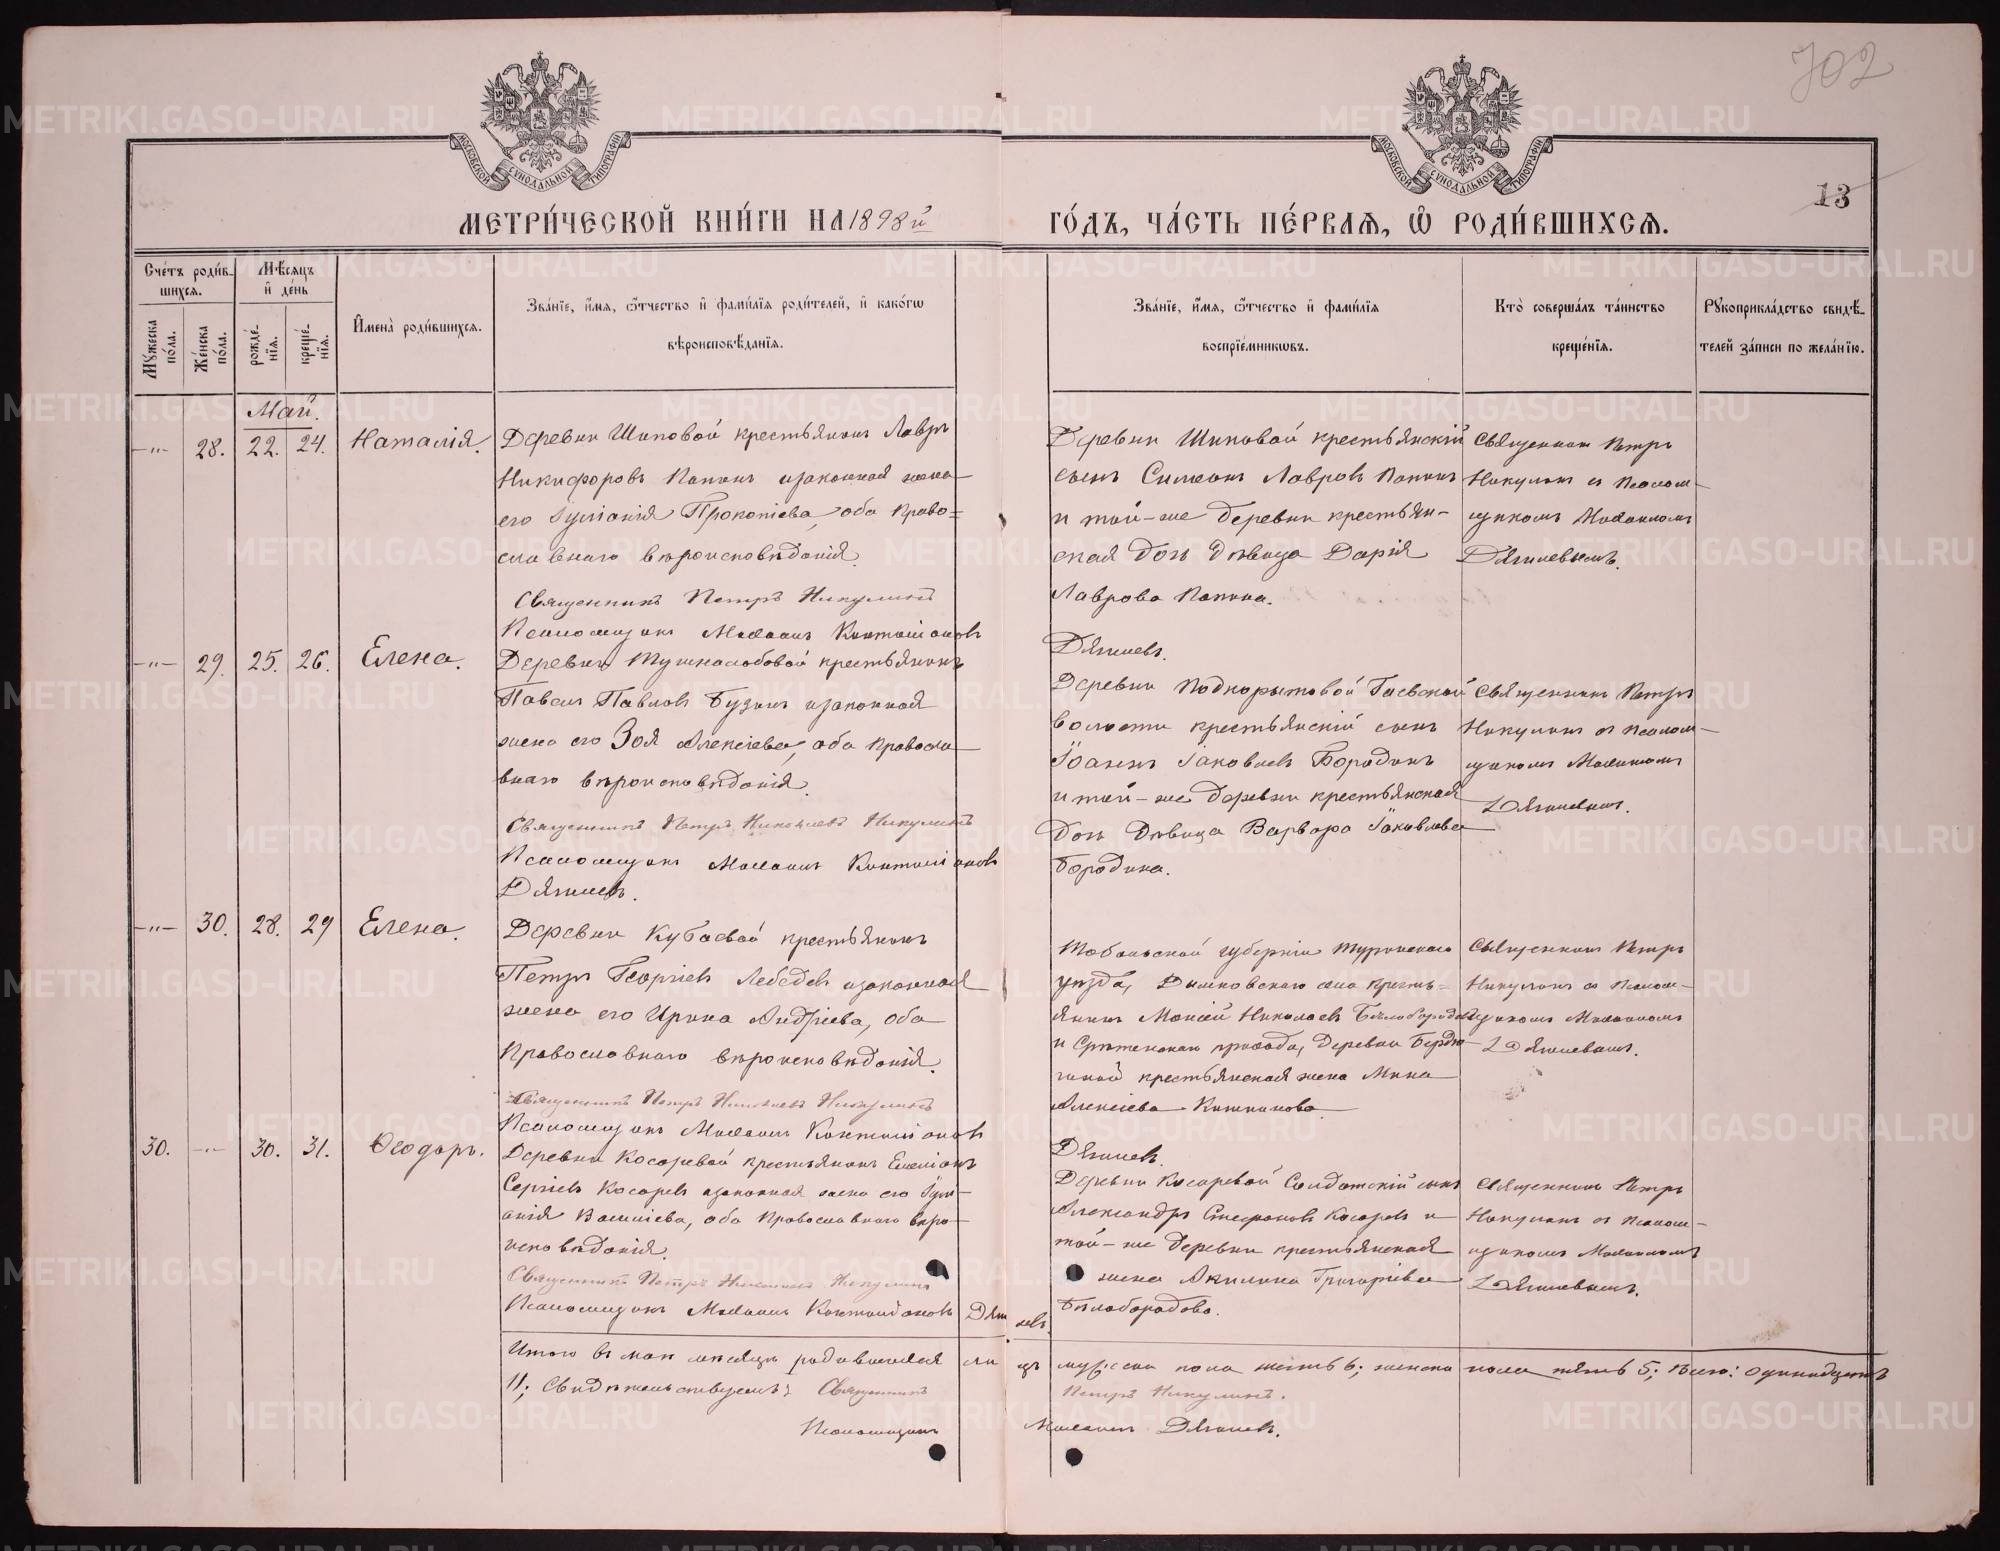 702
МОСКОВСКОЙ СУНОДАЛЬНОЙ ТИПОГРАФІИ
МОСКОВСКОЙ СУНОДАЛЬНОЙ ТИПОГРАФІИ
13
МЕТРИ́ЧЕСКОЙ КНИ́ГИ НА 1898й
ГО́ДЪ, ЧА́СТЬ ПЕ́РВАЯ, Ѽ РОДИ́ВШИХСЯ.
Сче́тъ роди́вшихся.
Мꙋ́жеска по́ла.
Же́нска по́ла.
Мѣ́сяцъ и де́нь
рожде́нїя.
креще́нїя.
И҆мена̀ роди́вшихся.
Зва́нїе, и҆́мя, ѻ҆́тчество и҆ фами́лїя роди́телей, и҆ како́гѡ
вѣроисповѣ́данїя.
Зва́нїе, и҆́мя, ѻ҆́тчество и҆ фами́лїя
воспрїе́мникѡвъ.
Кто̀ соверша́лъ та́инство
креще́нїя.
Рꙋкоприкла́дство свидѣ́-
телей за́писи по жела́нїю.
Май.
-„- 28. 22. 24. Наталія.
Деревни Шиповой крестьянинъ Лавръ
Никифоровъ Папинъ изаконная жена
его Іуліанія Прокопіева, оба право=
славнаго вѣроисповѣданія.
Священникъ Петръ Никулинъ
Псаломщикъ Михаилъ Контиліановъ
Дягилевъ.
Деревни Шиповой крестьянскій
сынъ Симеонъ Лавровъ Папинъ
и той-же деревни крестьян-
ская дочь дѣвица Дарія
Лаврова Папина.
Священникъ Петръ
Никулинъ съ псалом-
щикомъ Михаиломъ
Дягилевымъ.
-„- 29. 25. 26. Елена.
Деревни Тушнолобовой крестьянинъ
Павелъ Павловъ Бузинъ изаконная
жена его Зоя Алексіева, оба правосла-
внаго вѣроисповѣданія.
Священникъ Петръ Николаевъ Никулинъ
Псаломщикъ Михаилъ Контиліановъ
Дягилевъ.
Деревни Подкорытовой Гаевской
волости крестьянскій сынъ
Іоаннъ Іаковлевъ Бородинъ
и той-же деревни крестьянская
дочь дѣвица Варвара Іаковлева
Бородина.
Священникъ Петръ
Никулинъ съ псалом-
щикомъ Михаиломъ
Дягилевымъ.
-„- 30. 28. 29 Елена.
Деревни Кубаевой крестьянинъ
Петръ Георгіевъ Лебедевъ изаконная
жена его Ирина Андріева, оба
православнаго вѣроисповѣданія.
Священникъ Петръ Николаевъ Никулинъ
Псаломщикъ Михаилъ Контиліановъ
Дягилевъ.
Тобольской губерніи Туринскаго
уѣзда, села кресть=
янинъ Моисей Николаевъ Бѣлобородовъ
и Срѣтенскаго прихода, деревни
крестьянская жена Анна
Алексіева
Священникъ Петръ
Никулинъ съ псалом-
щикомъ Михаиломъ
Дягилевымъ.
30. -„- 30. 31. Ѳеодоръ.
Деревни Косаревой крестьянинъ Емеліанъ
Сергіевъ Косаревъ изаконная жена его Іулі-
анія Василіева, оба православнаго вѣро-
исповѣданія.
Священникъ Петръ Николаевъ Никулинъ
Псаломщикъ Михаилъ Контиліановъ Дягилевъ.
Деревни Косаревой Солдатскій сынъ
Александръ Стефановъ Косаревъ и
той-же деревни крестьянская
жена Акилина Григоріева
Бѣлобородова.
Священникъ Петръ
Никулинъ съ псалом-
щикомъ Михаиломъ
Дягилевымъ.
Итого въ маѣ мѣсяцѣ родившихся мужеска пола шесть 6; женска пола пять 5; всего: одиннадцать
11; Свидѣтельствуемъ: Священникъ Петръ Никулинъ.
Псаломщикъ Михаилъ Дягилевъ.
METRIKI.GASO-URAL.RU